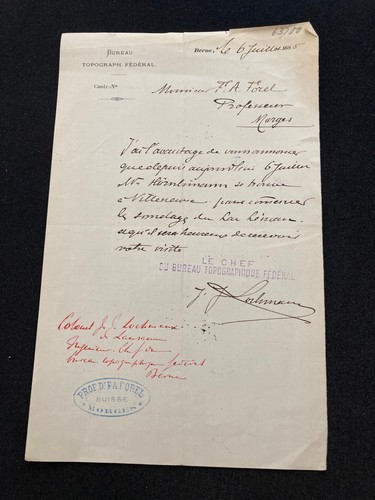 63/80
BUREAU
TOPOGRAPH. FÉDÉRAL.
Berne, le 6 Juillet 1885
Contr. No
Monsieur F. A. Forel
Professeur
Morges
J'ai l'avantage de vous annoncer
que depuis aujourd'hui 6 Juillet
Mr Hörnlimann se trouve
à Villeneuve pour commencer
les sondages du Lac Léman
et qu'il sera heureux de recevoir
votre visite
LE CHEF
DU BUREAU TOPOGRAPHIQUE FÉDÉRAL
J. J. Lochmann
Colonel J. J. Lochmann
de Lausanne
Ingénieur Chef du
bureau topographique fédéral
Berne
PROF. Dr F. A. FOREL
SUISSE
MORGES